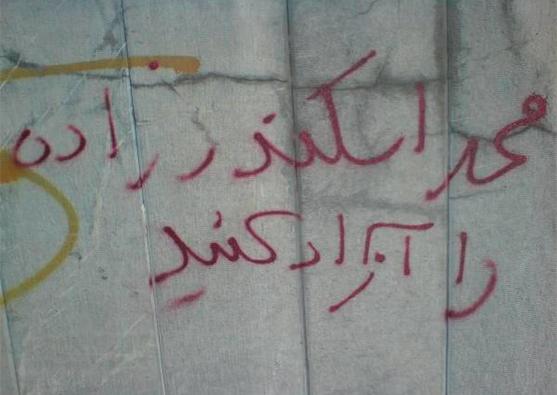 محمد اسکندرزاده
را آزاد کنید